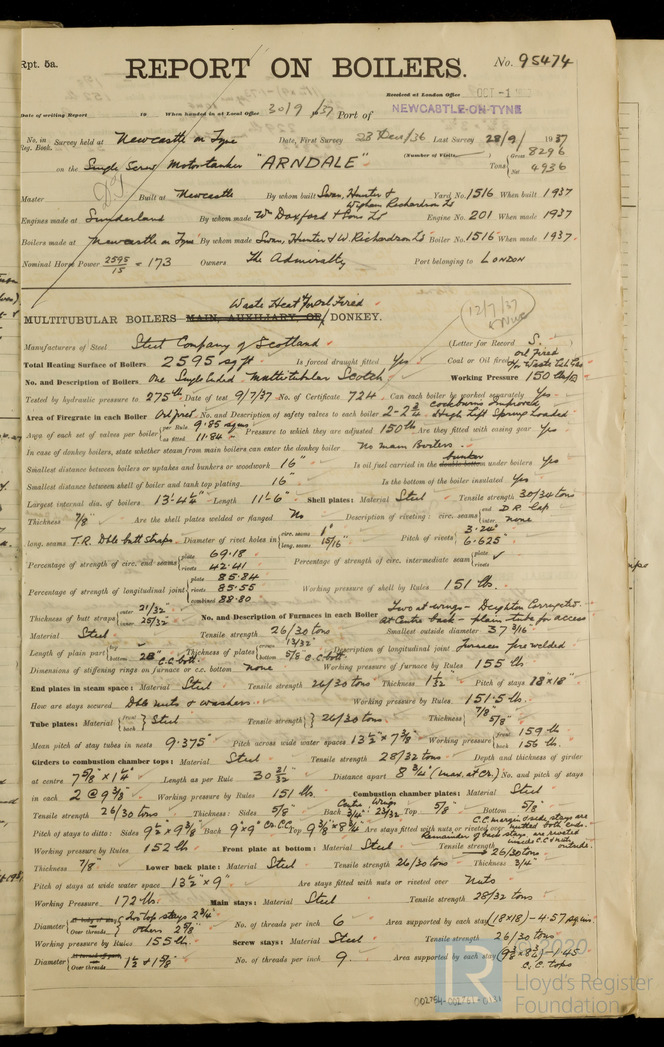 Rpt. 5a.
REPORT ON BOILERS.
No. 95474
Received at London Office OCT -1
Date of writing Report 19 When handed in at Local Office 30/9/37 Port of NEWCASTLE-ON-TYNE
No. in Reg. Book. Survey held at Newcastle on Tyne Date, First Survey 23 Dec/36 Last Survey 28/9/ 1937
(Number of Visits
on the Single Screw Motortanker "ARNDALE" Tons { Gross 8296 Net 4936
Master Built at Newcastle By whom built Swan, Hunter & Wigham Richardson Ld Yard No. 1516 When built 1937
Engines made at Sunderland By whom made Wm Doxford & Sons Ld Engine No. 201 When made 1937
Boilers made at Newcastle on Tyne By whom made Swan, Hunter & W. Richardson Ld Boiler No. 1516 When made 1937.
Nominal Horse Power 2595/15 = 173 Owners The Admiralty Port belonging to LONDON
Waste Heat &/or Oil Fired
MULTITUBULAR BOILERS MAIN, AUXILIARY, OR DONKEY.
12/7/37
Manufacturers of Steel Steel Company of Scotland (Letter for Record S.
Total Heating Surface of Boilers 2595 sq ft Is forced draught fitted Yes Coal or Oil fired oil Fired &/or Waste Ht Gas
No. and Description of Boilers One Single Ended Multitubular Scotch Working Pressure 150 lbs/□
Tested by hydraulic pressure to 275 lb Date of test 9/7/37 No. of Certificate 724 Can each boiler be worked separately Yes
Area of Firegrate in each Boiler Oil fired No. and Description of safety valves to each boiler 2-2¾ Cockburns Improved High Lift Spring Loaded
Area of each set of valves per boiler { per Rule 9.85 sq ins as fitted 11.84 Pressure to which they are adjusted 150 lb Are they fitted with easing gear Yes
In case of donkey boilers, state whether steam from main boilers can enter the donkey boiler No main Boilers
Smallest distance between boilers or uptakes and bunkers or woodwork 16" Is oil fuel carried in the double bottom bunker under boilers Yes
Smallest distance between shell of boiler and tank top plating 16" Is the bottom of the boiler insulated Yes
Largest internal dia. of boilers 13'-4¼" Length 11'-6" Shell plates: Material Steel Tensile strength 30/34 tons
Thickness 7/8" Are the shell plates welded or flanged No Description of riveting: circ. seams { end D.R. Lap inter. none
long. seams T.R. Dble butt straps Diameter of rivet holes in { circ. seams 1" long. seams 15/16" Pitch of rivets { 3.24" 6.625"
Percentage of strength of circ. end seams { plate 69.18 rivets 42.41 Percentage of strength of circ. intermediate seam { plate rivets
Percentage of strength of longitudinal joint { plate 85.84 rivets 85.55 combined 88.80 Working pressure of shell by Rules 151 lbs.
Thickness of butt straps { outer 21/32" inner 25/32" No. and Description of Furnaces in each Boiler Two at wings - Deighton Corrugated At Centre back - plain tube for access
Material Steel Tensile strength 26/30 tons Smallest outside diameter 37 3/16"
Length of plain part { top bottom 28" C.C. bott. Thickness of plates { crown 13/32" bottom 5/8" C.C. bott. Description of longitudinal joint furnaces fire welded
Dimensions of stiffening rings on furnace or c.c. bottom none Working pressure of furnace by Rules 155 lb.
End plates in steam space: Material Steel Tensile strength 26/30 tons Thickness 1 1/32" Pitch of stays 18" x 18"
How are stays secured Dble nuts & washers Working pressure by Rules 151.5 lb.
Tube plates: Material { front back } Steel Tensile strength { 26/30 tons Thickness { 7/8" 5/8"
Mean pitch of stay tubes in nests 9.375" Pitch across wide water spaces 13½" x 7⅞" Working pressure { front 159 lb back 156 lb.
Girders to combustion chamber tops: Material Steel Tensile strength 28/32 tons Depth and thickness of girder
at centre 7⅝" x 1¼" Length as per Rule 30 21/32 Distance apart 8¾" (max. at Cr.) No. and pitch of stays
in each 2 @ 9⅜" Working pressure by Rules 151 lb. Combustion chamber plates: Material Steel
Tensile strength 26/30 tons Thickness: Sides 5/8" Back Centre 3/4" Wings 23/32 Top 5/8" Bottom 5/8"
Pitch of stays to ditto: Sides 9½" x 9⅜" Back 9" x 9" Cr. C.C. Top 9⅜" x 8¾" Are stays fitted with nuts or riveted over C.C. margin & wide stays are nutted both ends. Remainder of back stays are riveted inside C.C. & nuts outside.
Working pressure by Rules 152 lb. Front plate at bottom: Material Steel Tensile strength 26/30 tons
Thickness 7/8" Lower back plate: Material Steel Tensile strength 26/30 tons Thickness 3/4"
Pitch of stays at wide water space 13½" x 9" Are stays fitted with nuts or riveted over Nuts
Working Pressure 172 lb. Main stays: Material Steel Tensile strength 28/32 tons
Diameter { At body of stay, or Over threads { 2 or top stays 2¾" others 2⅝" No. of threads per inch 6 Area supported by each stay (18x18) - 4.57 sq ins
Working pressure by Rules 155 lb. Screw stays: Material Steel Tensile strength 26/30 tons
Diameter { At turned off part, or Over threads 1½ & 1⅝" No. of threads per inch 9. Area supported by each stay (9⅜ x 8¾) - 1.45 C.C. tops
© 2020
LR
Lloyd's Register
Foundation